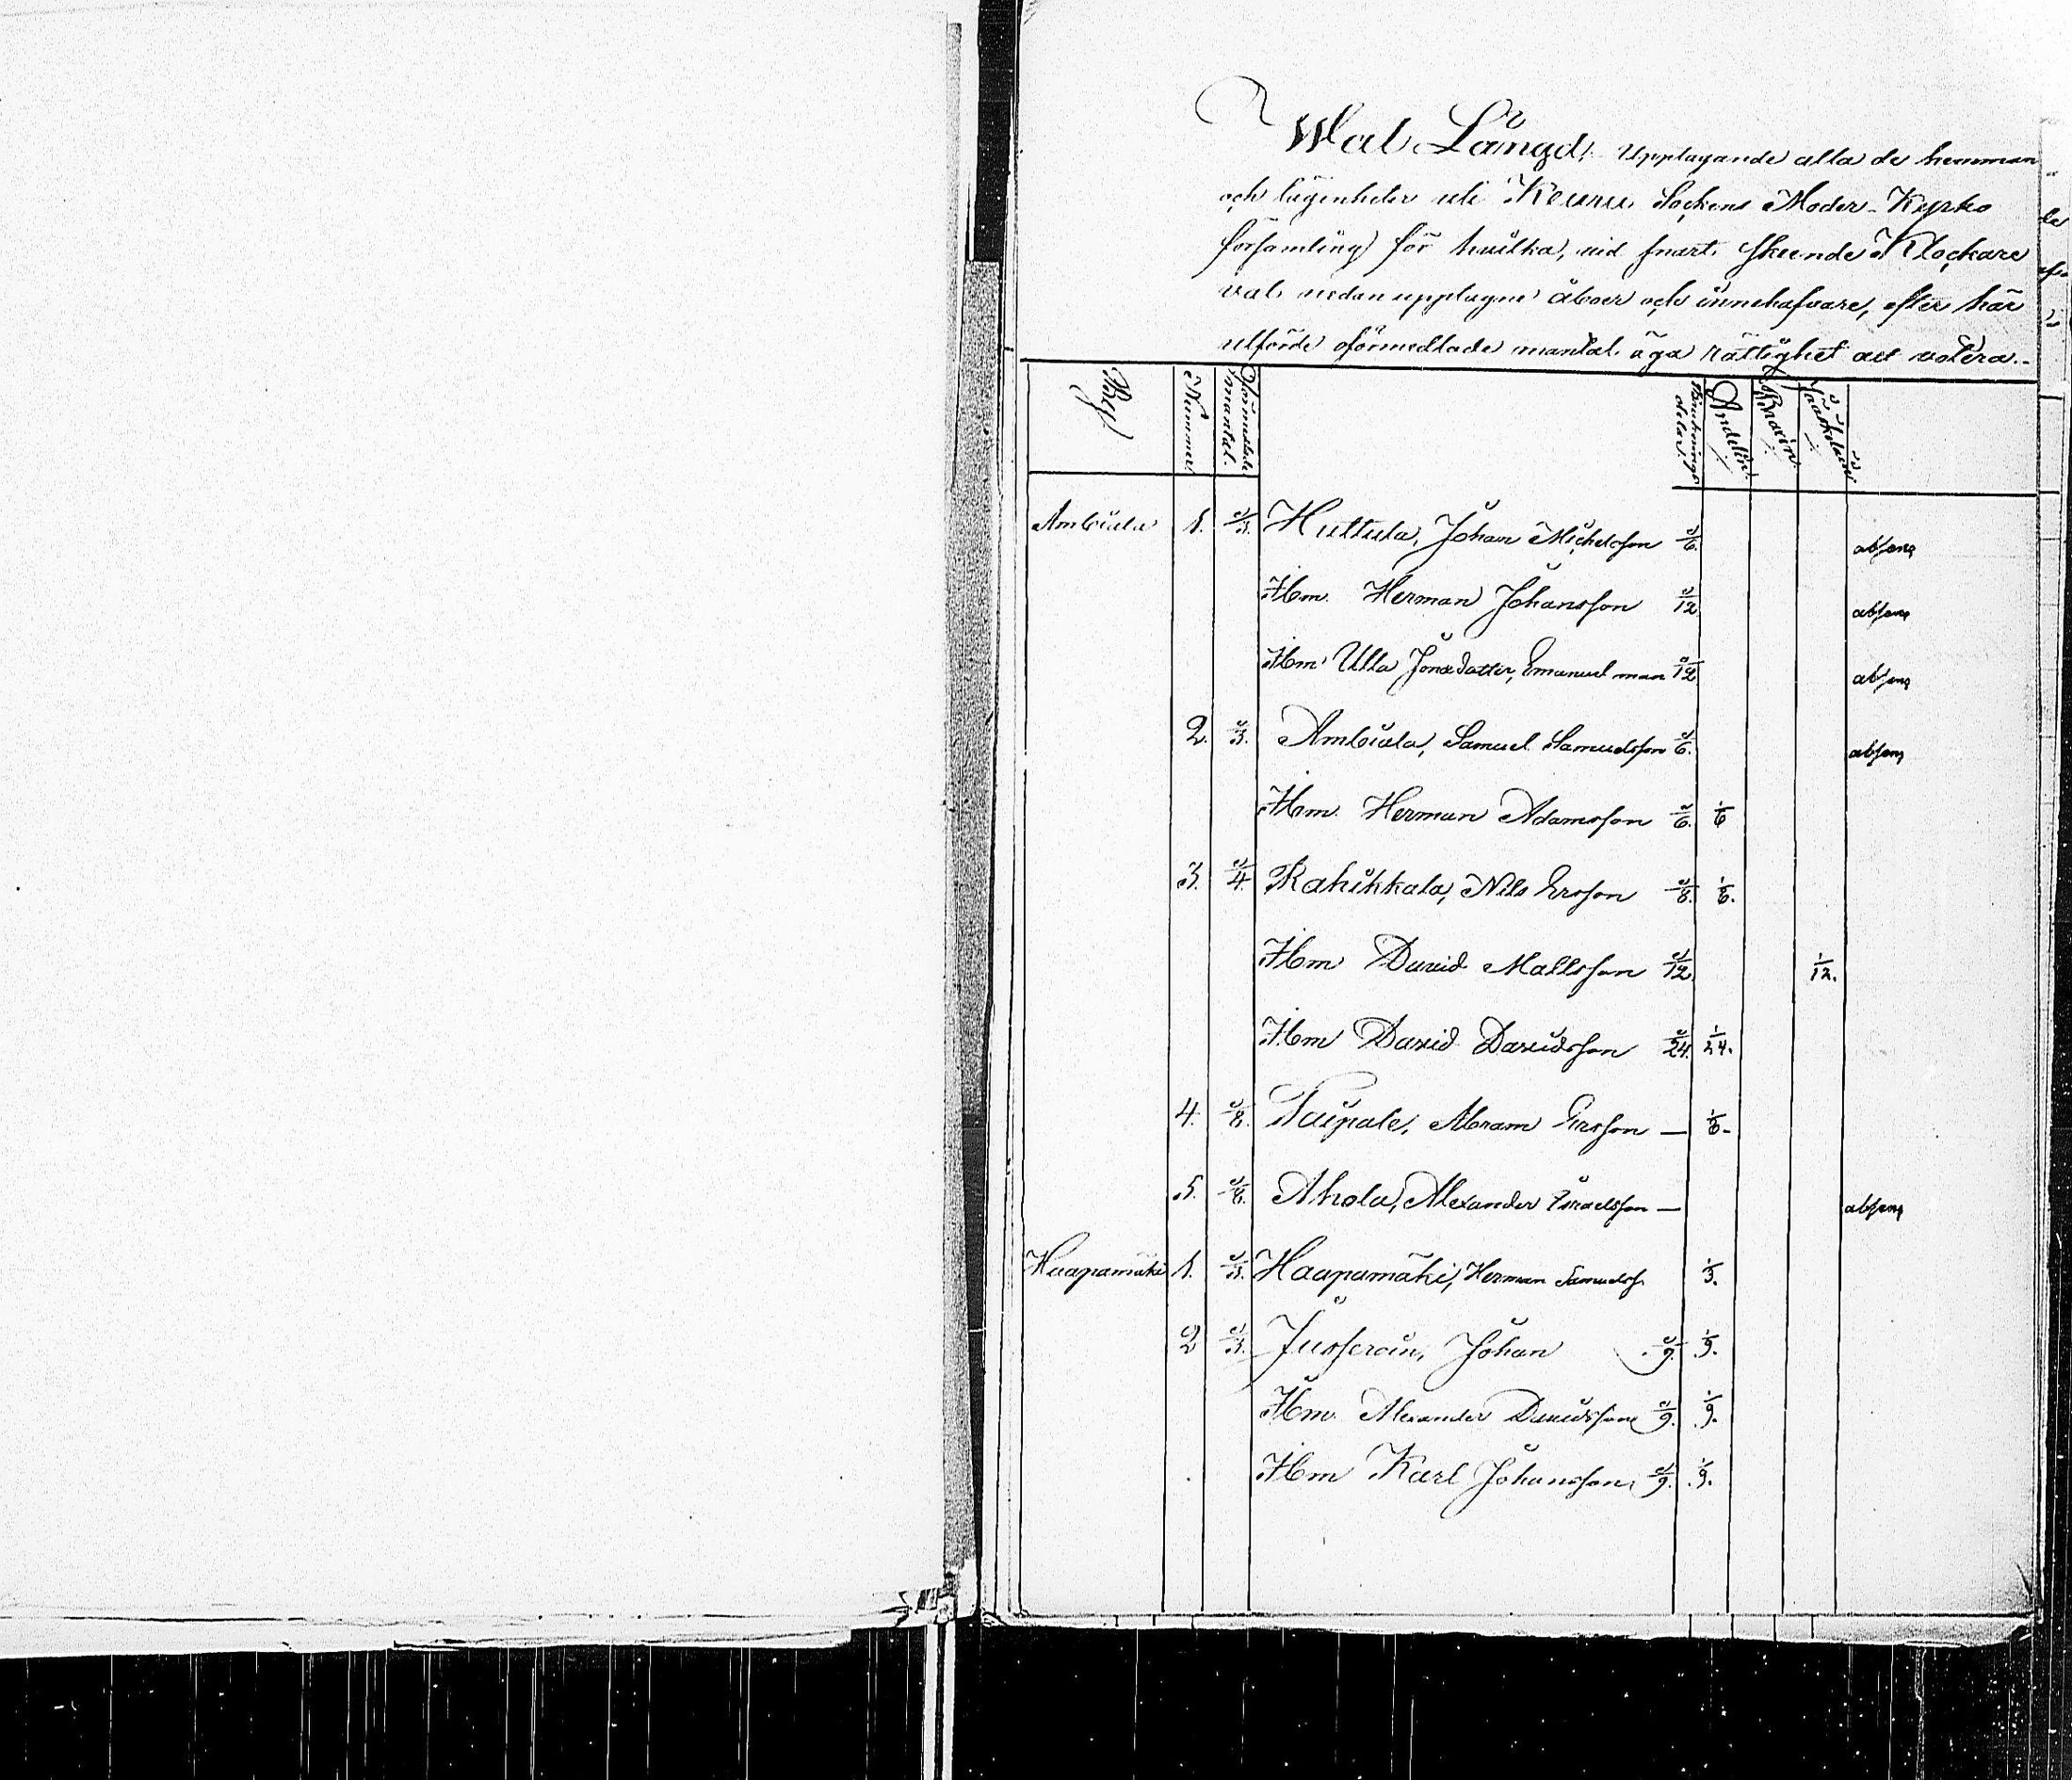 Wal Längd, Upptagande alla de hemman
och lägenheter uti Keuru Sockens Moder-Kyrko
församling för hvilka, vid snart skeende Klockare
val nedan upptagne åboer och innehafvare, efter här
utförde oförmedlade mantal äga rättighet att votera.-
By Nummer Oförmedlade mantal. Andelin
Ambiala 1. 1/3. Huttula, Johan Michelsson 1/6. absens
Hm. Herman Johansson 1/12 absens
Hm Ulla Jonædotter, Emanuel man 1/12 absens
2. 1/3. Ambiala, Samuel Samuelsson 1/6. absens
Hm. Herman Adamsson 1/6. 1/6
3. 1/4. Rahikkala, Nils Ersson 1/8. 1/8.
Hm David Mattsson 1/12 1/12.
Hm David Davidsson 1/24. 1/24.
4. 1/8. Taipale, Abram Ersson — 1/8-
5. 1/8. Ahola, Alexander Israelsson — absens
Haapamäki 1. 1/3. Haapamäki, Herman Samuelss. 1/3.
2 1/3. Jusseroin, Johan 1/9. 1/9.
Hm Alexander Davidsson 1/9. 1/9.
Hm Karl Johansson, 1/9. 1/9.